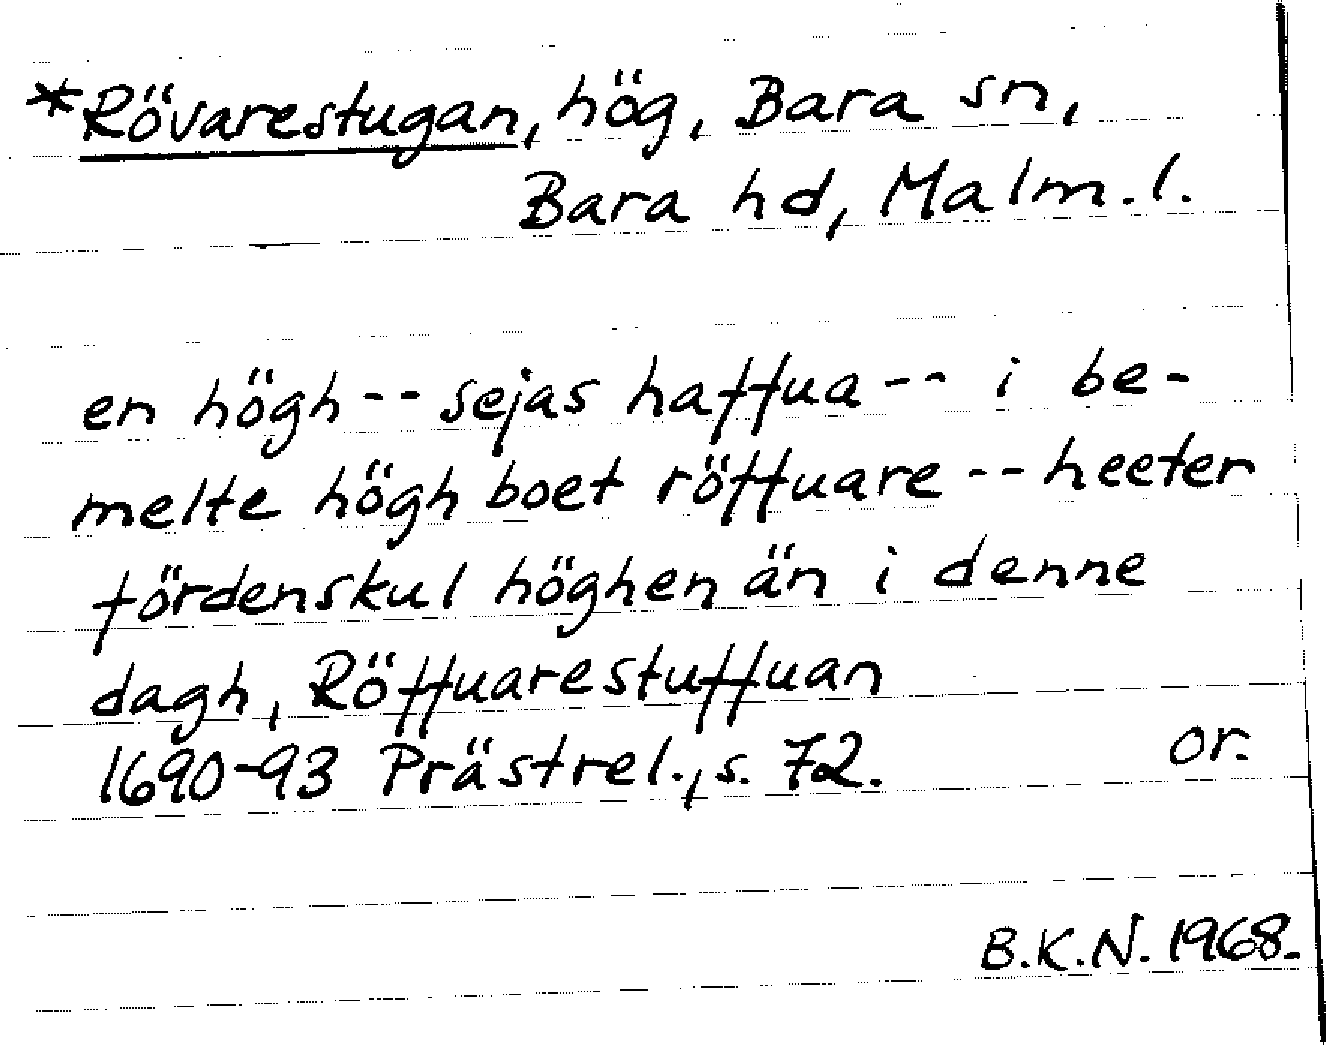 *Rövarestugan, hög, Bara sn,
Bara hd, Malm.l.
en högh -- sejas haffua -- i be-
melte högh boet röffuare -- heeter
fördenskul höghen än i denne
dagh, Röffuarestuffuan
1690-93 Prästrel., s. 72. or.
B.K.N. 1968.